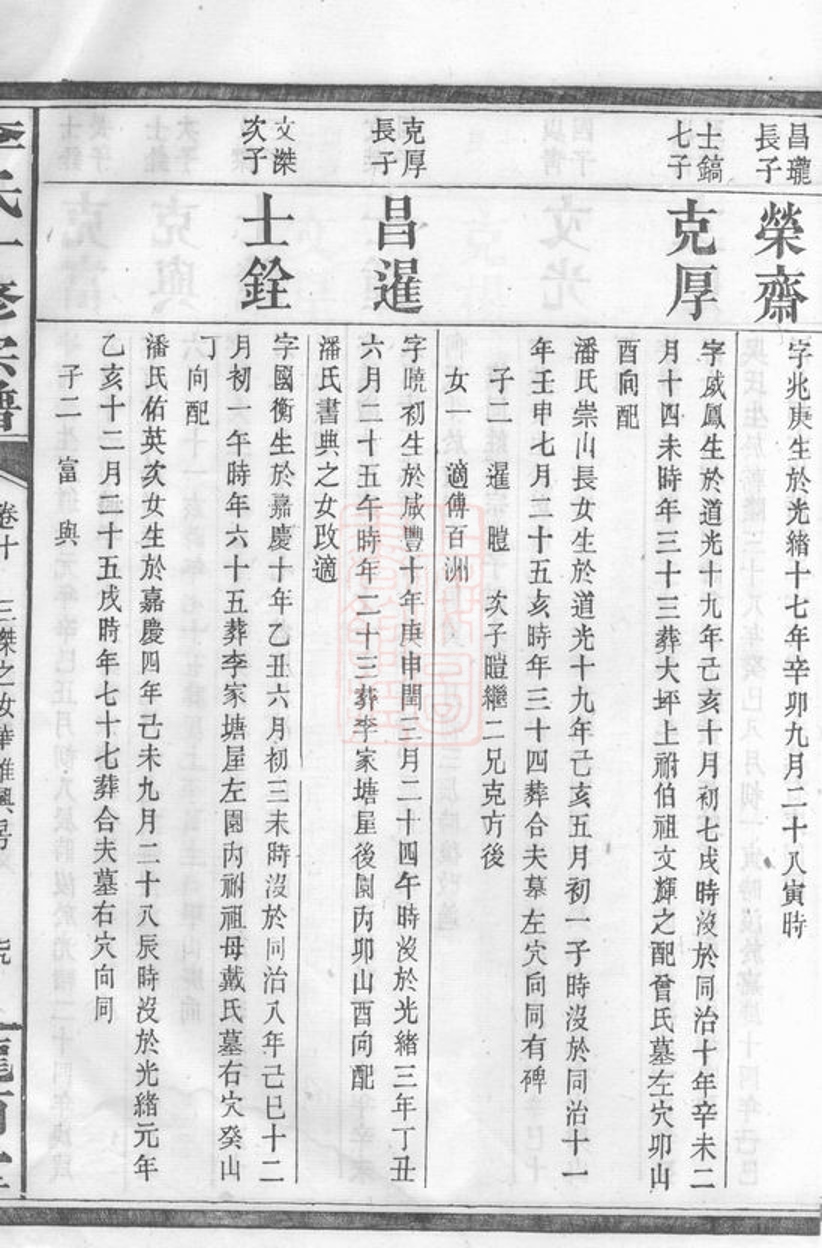 昌瓏
長子
榮齋
字兆庚生於光緒十七年辛卯九月二十八寅時
士鎬
七子
克厚
字威鳳生於道光十九年己亥十月初七戌時沒於同治十年辛未二
月十四未時年三十三葬大坪上祔伯祖文輝之配曾氏墓左穴卯山
酉向配
潘氏崇山長女生於道光十九年己亥五月初一子時沒於同治十一
年壬申七月二十五亥時年三十四葬合夫墓左穴向同有碑
子二 暹 暟 次子暟繼二兄克方後
女一 適傅百洲
克厚
長子
昌暹
字曉初生於咸豐十年庚申閏三月二十四午時沒於光緒三年丁丑
六月二十五午時年二十三葬李家塘屋後園內卯山酉向配
潘氏書典之女改適
文滐
次子
士銓
字國衡生於嘉慶十年乙丑六月初三未時沒於同治八年己巳十二
月初一午時年六十五葬李家塘屋左園內祔祖母戴氏墓右穴癸山
丁向配
潘氏佑英次女生於嘉慶四年己未九月二十八辰時沒於光緒元年
乙亥十二月二十五戌時年七十七葬合夫墓右穴向同
子二 富 與
李氏 修宗譜
卷十